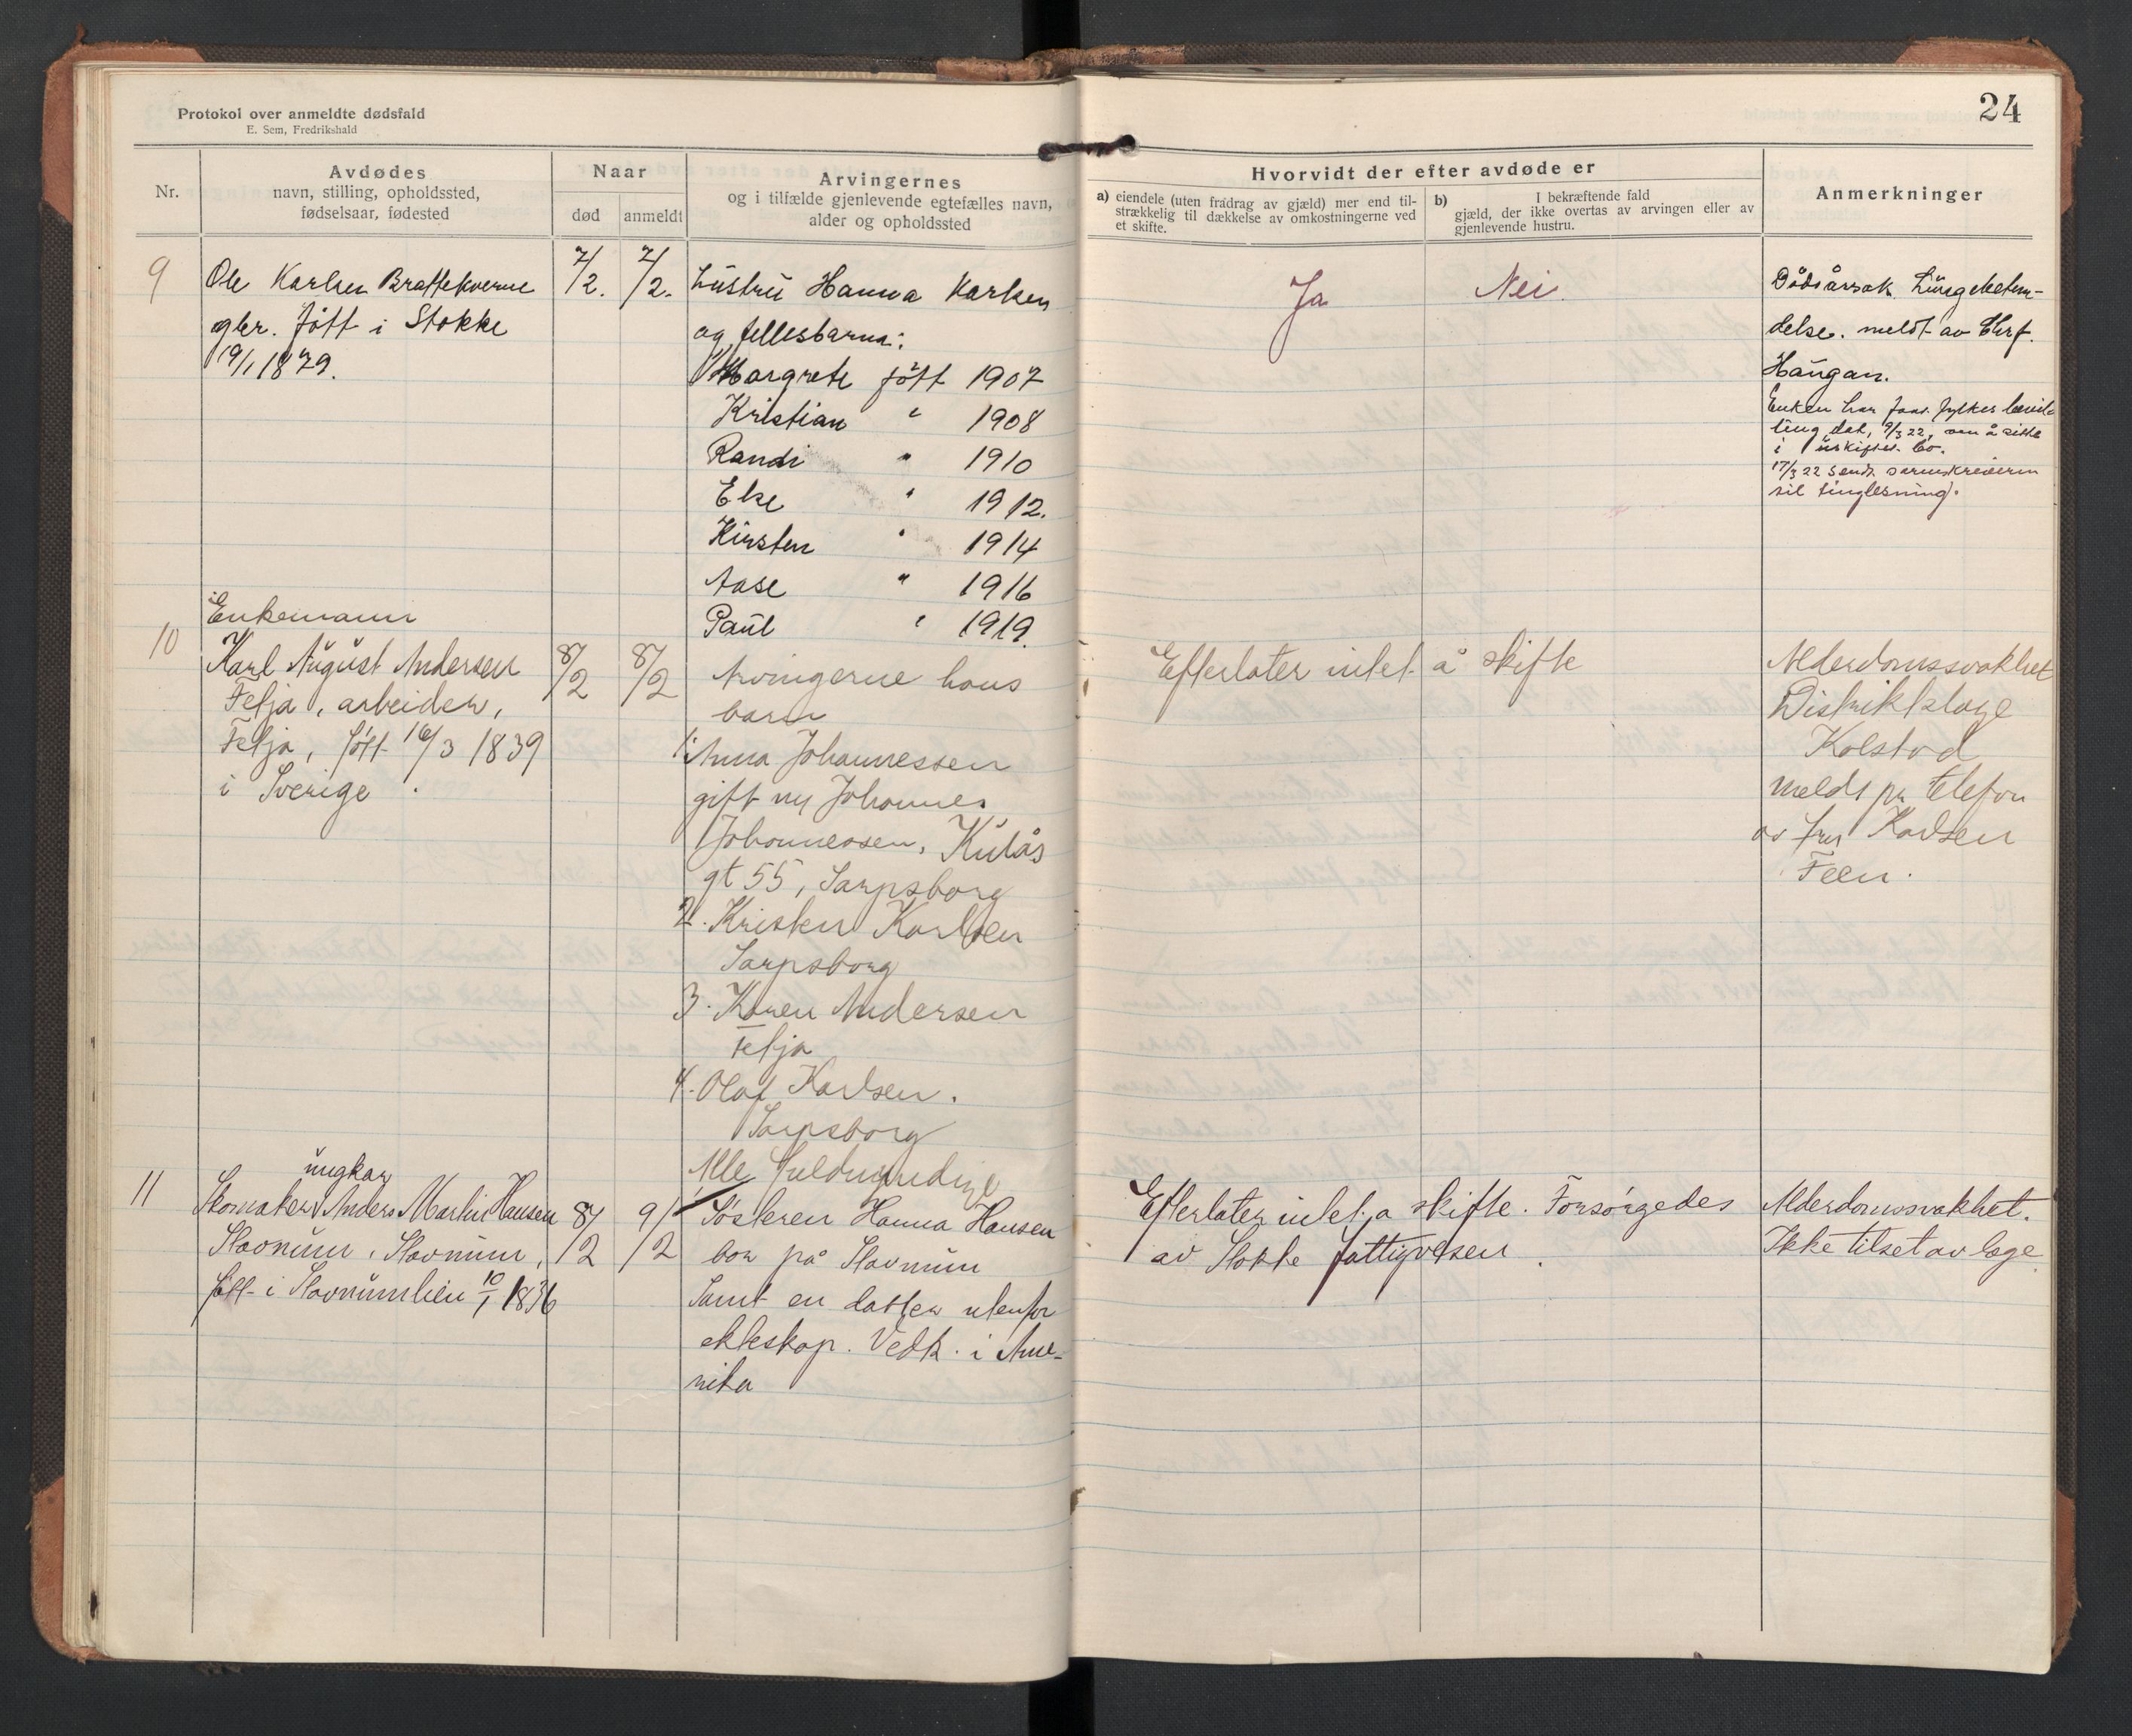 Protokol over anmeldte dødsfald
E. Sem, Fredrikshald
24
Nr.
Avdødes
navn, stilling, opholdssted,
fødselsaar, fødested
Naar
død
anmeldt
Arvingernes
og i tilfælde gjenlevende egtefælles navn,
alder og opholdssted
Hvorvidt der efter avdøde er
a) eiendele (uten fradrag av gjæld) mer end til-
strækkelig til dækkelse av omkostningerne ved
et skifte.
b) I bekræftende fald
gjæld, der ikke overtas av arvingen eller av
gjenlevende hustru.
Anmerkninger
9
Ole Karlsen Brattekverne
gbr. født i Stokke
19/1 1879.
7/2.
7/2.
hustru Hanna Karlsen
og fellesbarna:
Margrete født 1907
Kristian " 1908
Randi " 1910
Else " 1912.
Kirsten " 1914
Aase " 1916
Paul " 1919.
Ja
Nei.
Dødsårsak Lungebeten-
delse. meldt av
Haugan.
Enken har fylkes
dat, 9/3 22, om å sitte
i uskiftet bo.
17/3 22 sendt sorenskriveren
til tinglesning.
10
Enkemann
Karl August Andersen
Felja, arbeider,
Felja, født 16/3 1839
i Sverige.
8/2
8/2
Arvingerne hans
barn
1. Anna Johannessen
gift m/ Johannes
Johannessen, Kulås
gt 55, Sarpsborg
2. Kristen Karlsen
Sarpsborg
3. Karen Andersen
Felja
4. Olaf Karlsen.
Sarpsborg
Alle fuldmyndige
Efterlater intet å skifte
Alderdomssvakhet
Distriktslæge
Kolstad
meldt pr telefon
av fru Karlsen
Feen.
11
ungkar
Skomaker Anders Martin Hansen
Stavnum, Stavnum,
født i Stavnumlien 10/1 1836
8/2
9/2
Søsteren Hanna Hansen
bor på Stavnum
Samt en datter utenfor
ekteskap. Vedk. i Ame-
rika
Efterlater intet å skifte. Forsørgedes
av Stokke fattigvesen.
Alderdomssvakhet.
Ikke tilset av læge.